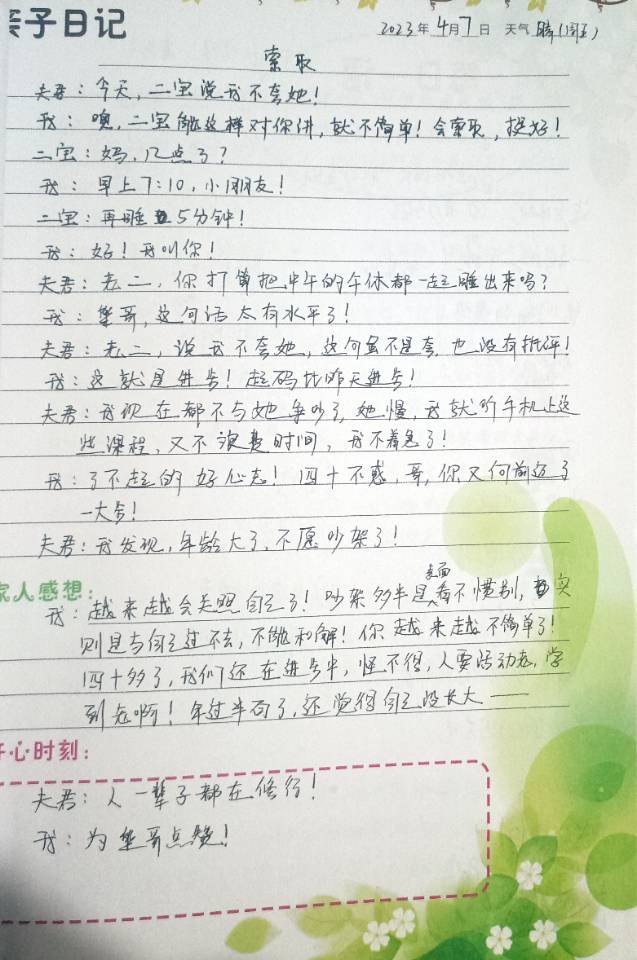 亲子日记
2023年4月7日 天气 晴(周五)
索取
夫君：今天，二宝说我不夸她！
我：噢，二宝能这样对你讲，就不简单！会索取，挺好！
二宝：妈，几点了？
我：早上7:10，小朋友！
二宝：再睡5分钟！
我：好！我叫你！
夫君：老二，你打算把中午的午休都一起睡出来吗？
我：哥，这句话太有水平了！
夫君：老二，说我不夸她，这句虽不是夸，也没有批评！
我：这就是进步！起码比昨天进步！
夫君：我现在都不与她争吵了，她慢，我就听手机上这
些课程，又不浪费时间，我不着急了！
我：了不起的好心态！四十不惑，哥，你又向前迈了
一大步！
夫君：我发现，年龄大了，不愿吵架了！
家人感想：
我：越来越会关照自己了！吵架多半是表面看不惯别，实
则是与自己过不去，不能和解！你越来越不简单了！
四十多了，我们还在进步中，怪不得，人要活动老，学
到老啊！年过半百了，还觉得自己没长大——
开心时刻：
夫君：人一辈子都在修行！
我：为哥点赞！